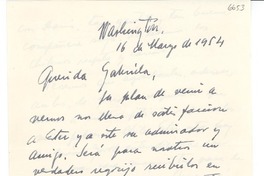 6653
Washington,
16 de Marzo de 1954
Querida Gabriela,
Su plan de venir a
vernos nos llena de satisfaccion
a Ester y a este su admirador y
amigo. Será para nosotros un
verdadero regocijo recibirlos en